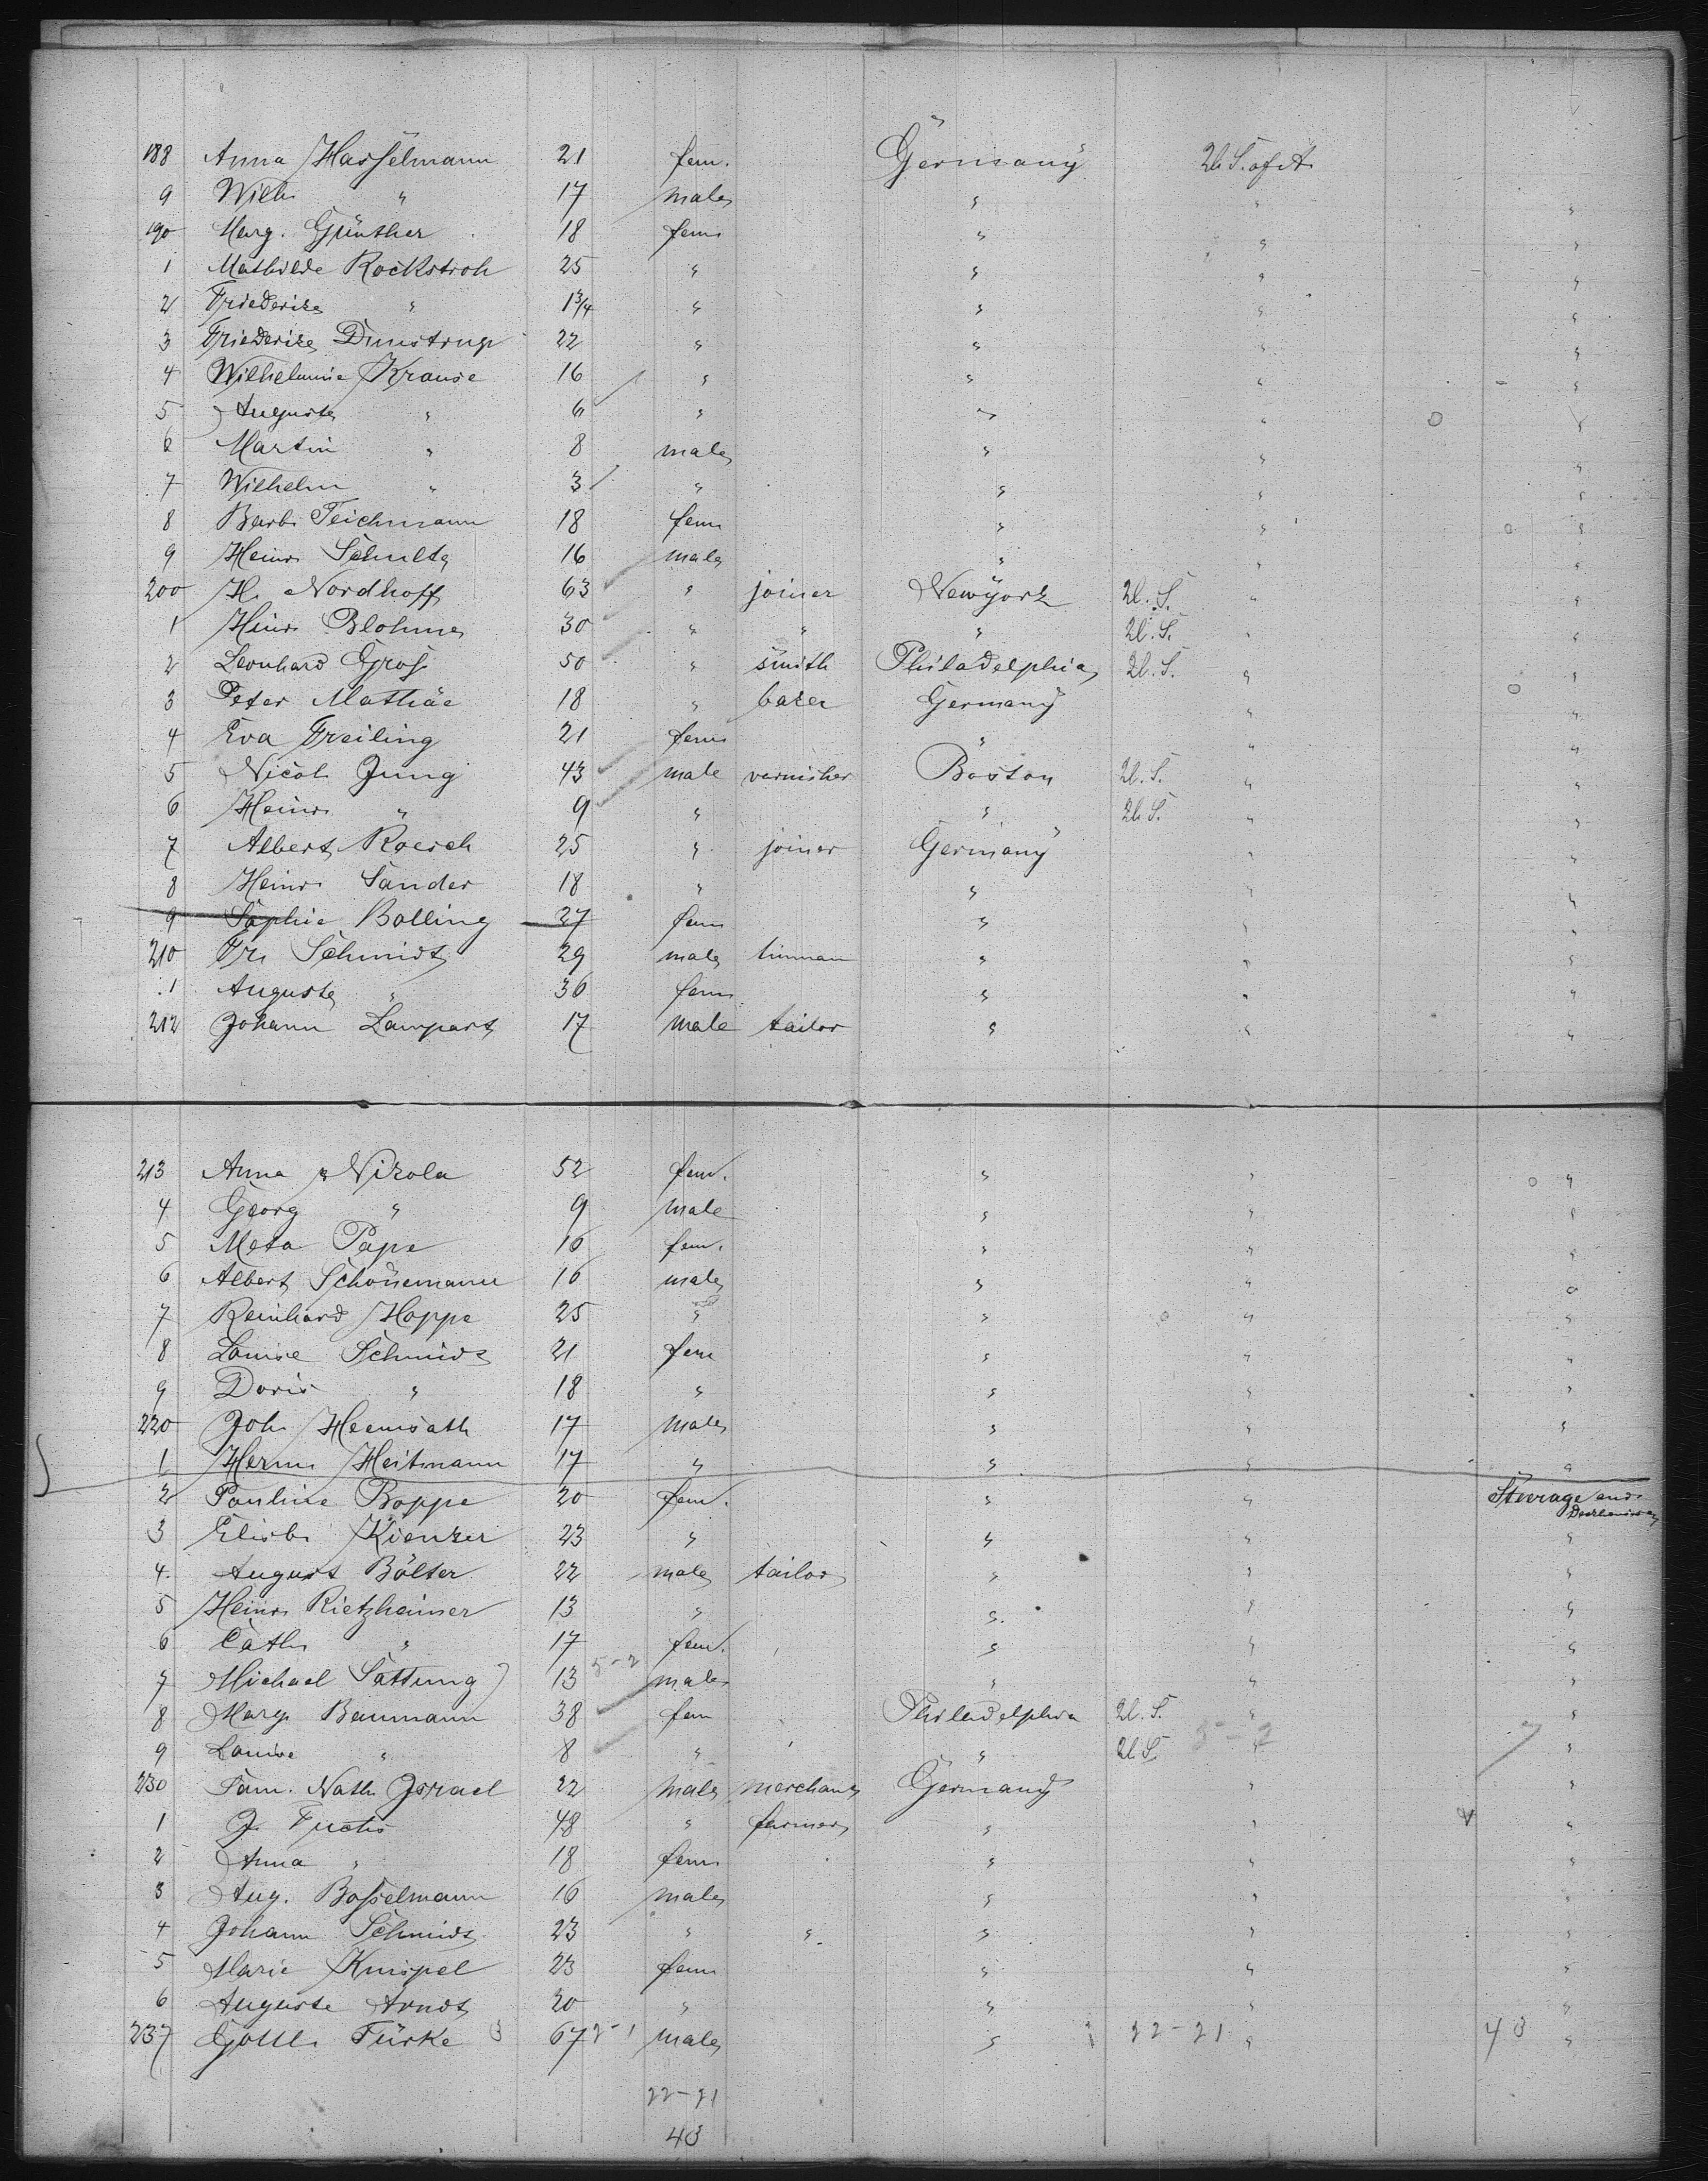 188 Anna Hasselmann 21 fem. Germany U. S. of A.
9 Wilh. " 17 male " " "
190 Marg. Günther 18 fem. " " "
1 Mathilde Rockstroh 25 " " " "
2 Friederike " 1 3/4 " " " "
3 Friederike Dunstrup 22 " " " "
4 Wilhelmine Krause 16 " " " "
5 Auguste " 6 " " "
6 Martin " 8 male " " "
7 Wilhelm " 3 " " " "
8 Barb. Teichmann 18 fem. " " "
9 Heinr. Schulte 16 male " " "
200 H. Nordhoff 63 " joiner Newyork U. S. " "
1 Heinr. Blohme 30 " " " U. S. " "
2 Leonhard Groß 50 " smith Philadelphia U. S. " "
3 Peter Mathäe 18 " baker Germany " "
4 Eva Freiling 21 fem. " " "
5 Nicol. Jung 43 male varnisher Boston U. S. " "
6 Heinr. " 9 " " U. S. " "
7 Albert Roesch 25 " joiner Germany " "
8 Heinr. Sander 18 " " " "
9 Sophie Bolling 27 fem. " " "
210 Fr. Schmidt 29 male tinman " " "
1 Auguste " 36 fem. " " "
212 Johann Lampart 17 male tailor " " "
213 Anna Nikola 52 fem. " " "
4 Georg " 9 male " " "
5 Meta Pape 16 fem. " " "
6 Albert Schönemann 16 male " " "
7 Reinhard Hoppe 25 " " " "
8 Louise Schmidt 21 fem " " "
9 Doris " 18 " " " "
220 Joh. Heemsath 17 male " " "
1 Herm. Heitmann 17 " " " "
2 Pauline Poppe 20 fem. " " Steerage and
3 Elisb. Kienker 23 " " "
4 August Bölter 22 male tailor " " "
5 Heinr. Rietzheimer 13 " " " "
6 Cath. " 17 fem. " " "
7 Michael Sattung 13 5-2 male " " "
8 Marg. Baumann 38 fem Philadelphia U. S. " "
9 Louise " 8 " " U. S. 5-2 " "
230 Sam. Nath. Israel 22 male merchant Germany " "
1 J. Fuchs 48 " farmer " " "
2 Anna " 18 fem. " " "
3 Aug. Bosselmann 16 male " " "
4 Johann Schmidt 23 " " " " "
5 Marie Knispel 23 fem " " "
6 Auguste Arndt 20 " " " "
237 Gottl. Türke 67 2-1 male " 22-21 " 43 "
22-21
43